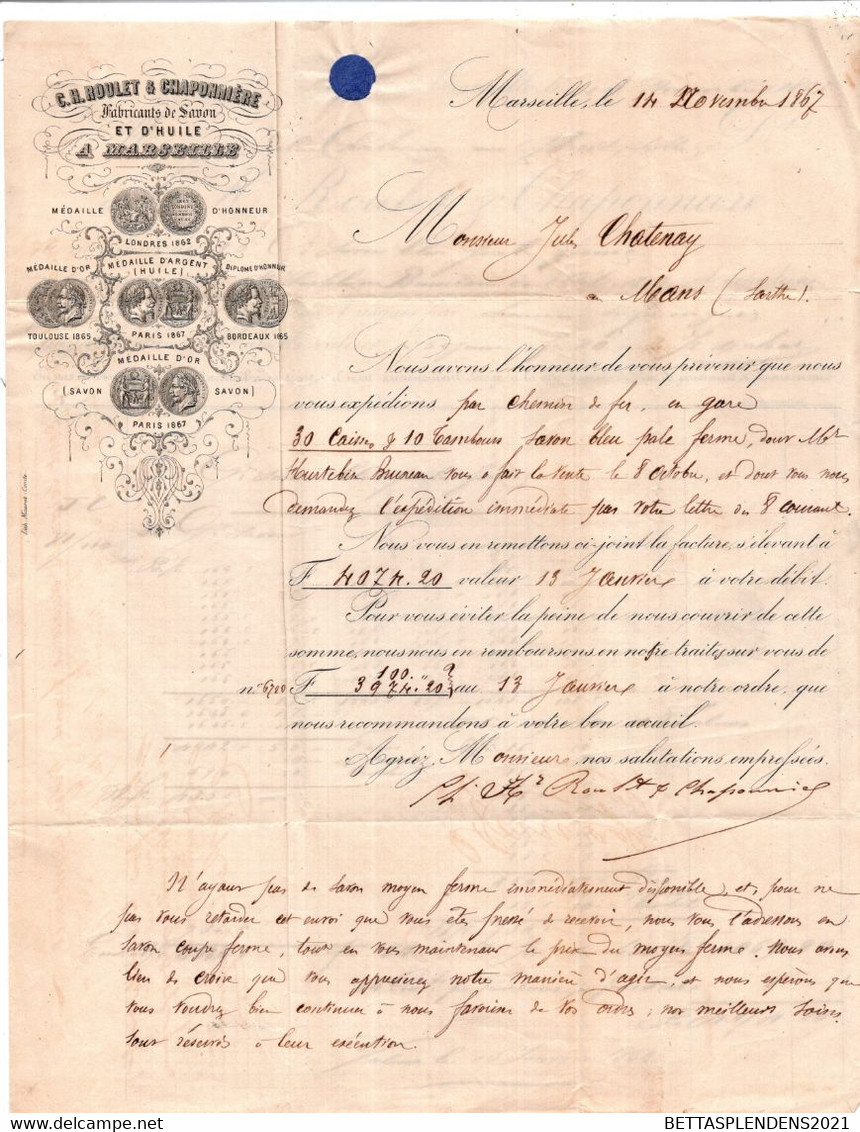 C.H. ROULET & CHAPONNIÈRE
Fabricants de Savon
ET D'HUILE
A MARSEILLE
MÉDAILLE D'HONNEUR
LONDRES 1862
MÉDAILLE D'OR
MÉDAILLE D'ARGENT
(HUILE)
DIPLOME D'HONNEUR
TOULOUSE 1865
PARIS 1867
BORDEAUX 1865
MÉDAILLE D'OR
(SAVON SAVON)
PARIS 1867
Marseille, le 14 Novembre 1867
Monsieur Jules Chatenay
a Mans (Sarthe).
Nous avons l'honneur de vous prévenir que nous
vous expédions par chemin de fer, en gare
30 Caisses & 10 Tambours savon bleu pale ferme, dont Mr
Hurtebin Bruneau vous a fait la vente le 8 octobre, et dont vous nous
demandez l'expédition immédiate par votre lettre du 8 courant.
Nous vous en remettons ci-joint la facture, s'élevant à
F 4074.20 valeur 13 Janvier à votre débit.
Pour vous éviter la peine de nous couvrir de cette
somme, nous nous en remboursons en nos traites sur vous de
100. "
no 6700 F 3974.20 au 13 Janvier à notre ordre, que
nous recommandons à votre bon accueil.
Agréez, Monsieur, nos salutations empressées.
Ch. Hri Roulet & Chaponnière
N'ayant pas de savon moyen ferme immédiatement disponible, et pour ne
pas vous retarder cet envoi que vous êtes pressé de recevoir, nous vous l'adressons en
savon coupe ferme, tout en vous maintenant le prix du moyen ferme. Nous avons
lieu de croire que vous apprécierez notre manière d'agir, et nous espérons que
vous voudrez bien continuer à nous favoriser de vos ordres ; nos meilleurs soins
sont réservés à leur exécution.
BETTASPLENDENS2021